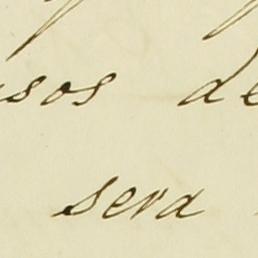 sos de
sera